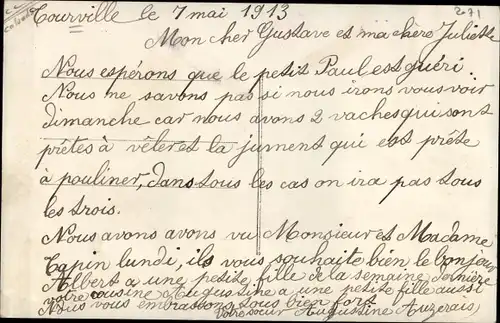 Tourville le 7 mai 1913
271
Mon cher Gustave et ma chère Juliette
Nous espérons que le petit Paul est guéri.
Nous ne savons pas si nous irons vous voir
dimanche car nous avons 2 vaches qui sont
prêtes à vêler et la jument qui est prête
à pouliner, dans tous les cas on ira pas tous
les trois.
Nous avons avons vu Monsieur et Madame
Tapin lundi, ils vous souhaite bien le bonjour
Albert a une petite fille de la semaine dernière
votre cousine Augustine a une petite fille aussi
Nous vous embrassons tous bien fort
votre sœur Augustine Auzerais